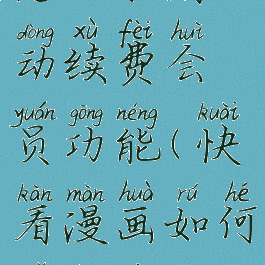 dòng xù fèi huì
动续费会
yuán gōng néng ( kuài
员功能(快
kàn màn huà rú hé
看漫画如何